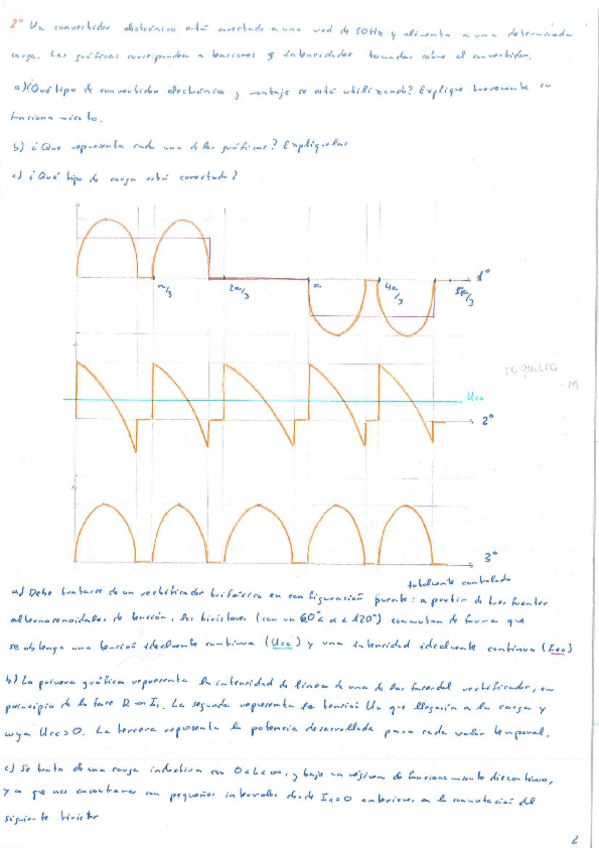 2º Un convertidor electrónico está conectado a una red de 50Hz y alimenta a una determinada
carga. Las gráficas corresponden a tensiones y intensidades tomadas sobre el convertidor.
a) ¿Qué tipo de convertidor electrónico y montaje se está utilizando? Explique brevemente su
funcionamiento.
b) ¿Que representa cada una de las gráficas? Explíquelas
c) ¿Qué tipo de carga está conectado?
π/3
2π/3
π
4π/3
5π/3
1º
te quiero
-M
2º
3º
totalmente controlado
a) Debe tratarse de un rectificador trifásico en configuración puente: a partir de tres fuentes
alternosenoidales de tensión, los tiristores (con un 60° < α < 120°) conmutan de forma que
se obtenga una tensión idealmente continua () y una intensidad idealmente continua ()
b) La primera gráfica representa la intensidad de línea de una de las fases del rectificador, en
principio de la fase R = I₁. La segunda representa la tensión que llegaría a la carga y
cuya > 0. La tercera representa la potencia desarrollada para cada valor temporal.
c) Se trata de una carga inductiva con 0<L<∞, y bajo un régimen de funcionamiento discontinuo,
ya que nos encontramos con pequeños intervalos donde = 0 anteriores a la conmutación del
siguiente tiristor
2